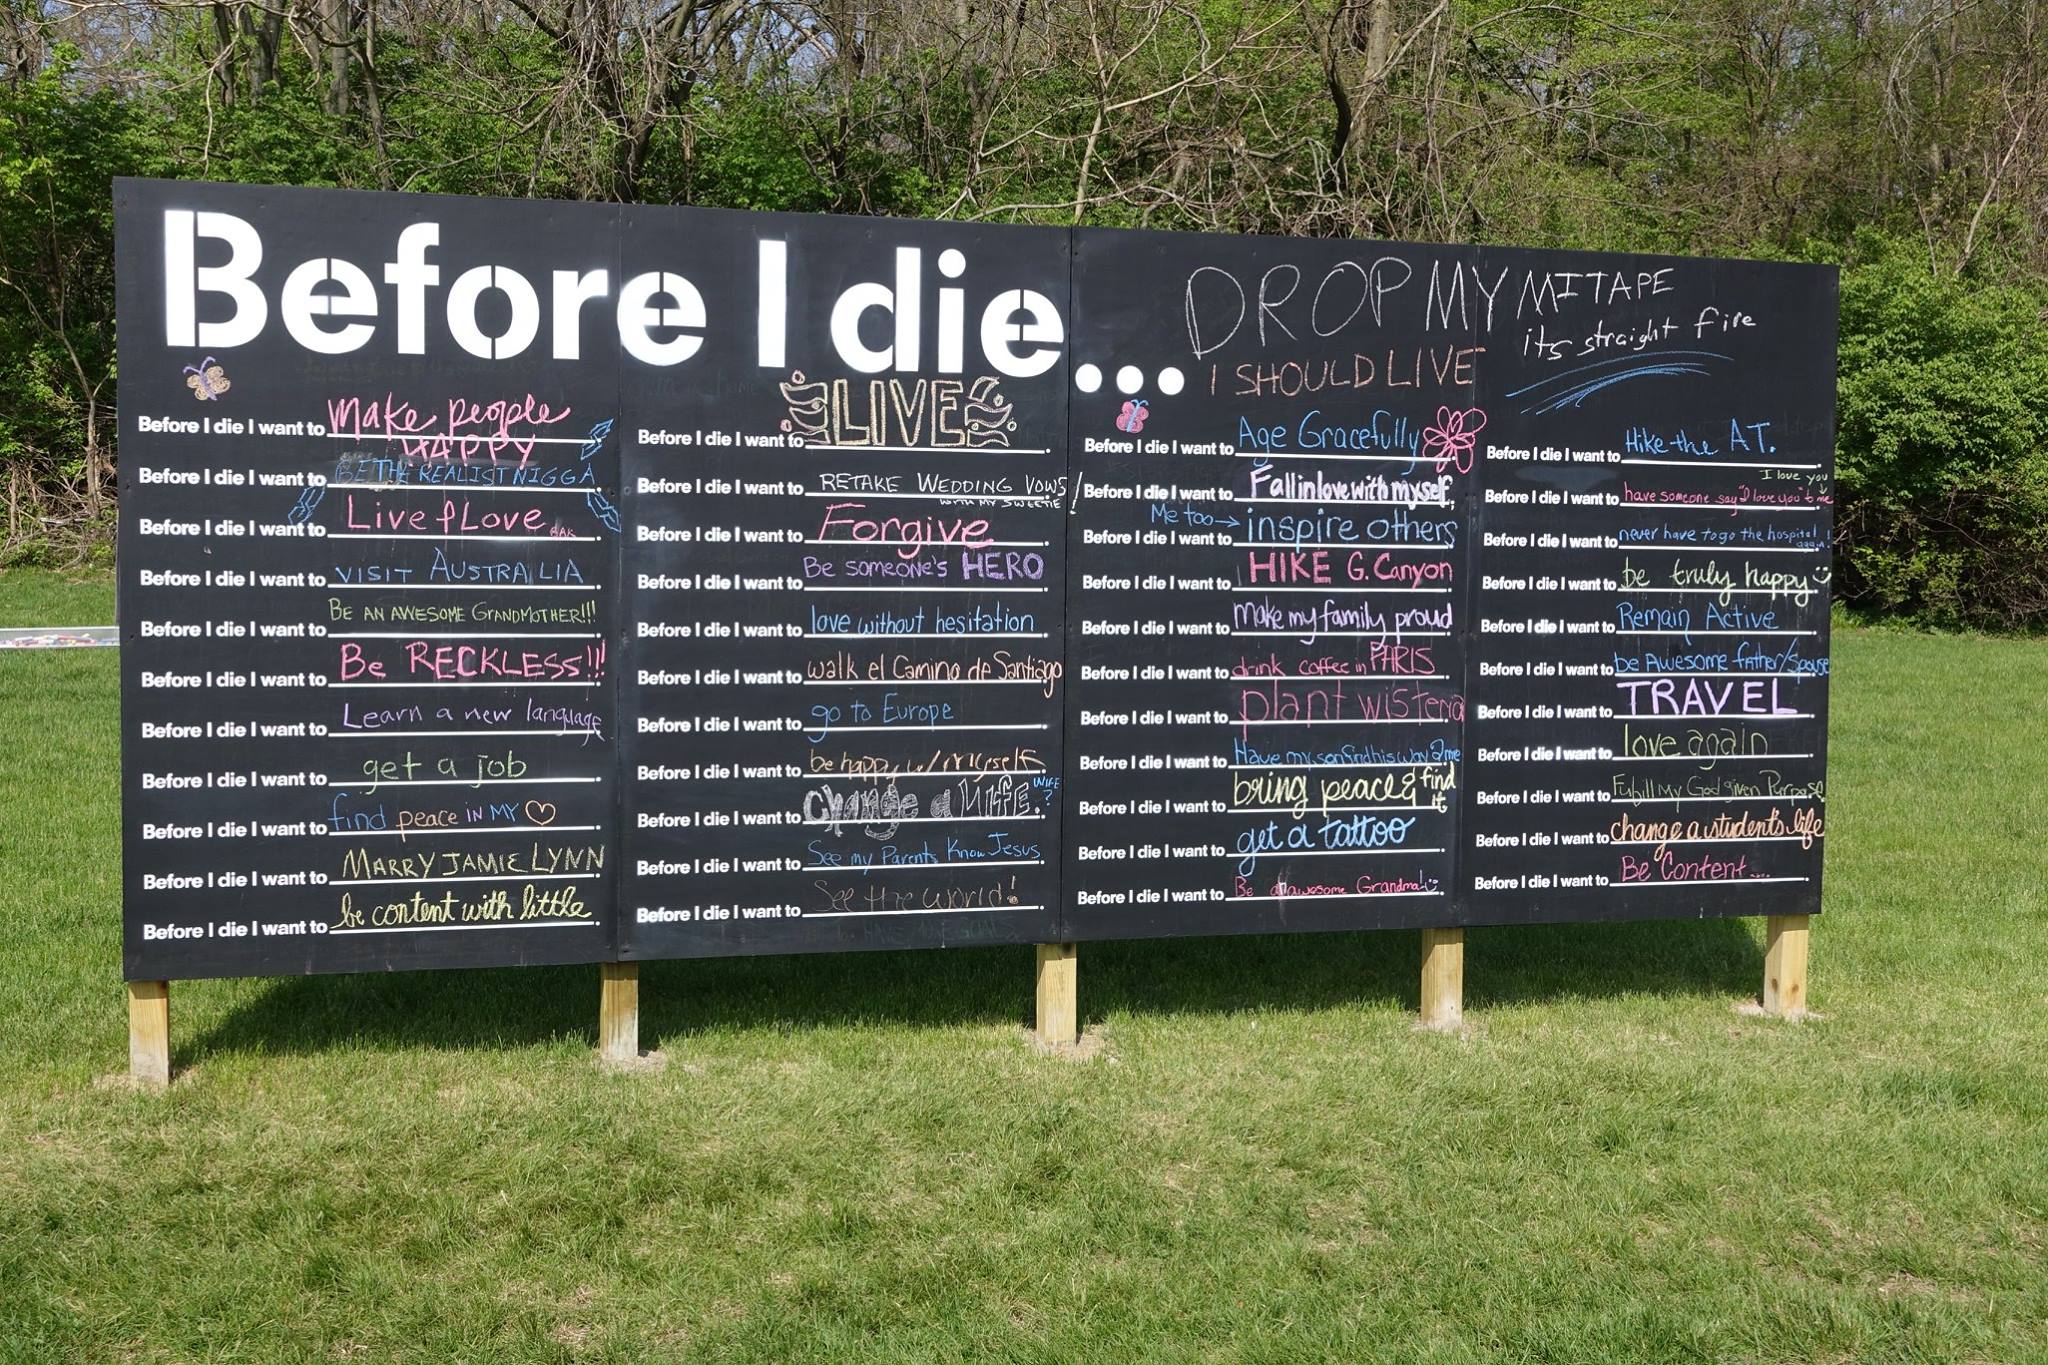 Before I die...
DROP MY MITAPE
its straight fire
I SHOULD LIVE
Before I die I want to make people HAPPY.
Before I die I want to BE THE REALIST NIGGA.
Before I die I want to Live & Love.
Before I die I want to VISIT AUSTRALIA.
Before I die I want to BE AN AWESOME GRANDMOTHER!!!.
Before I die I want to Be RECKLESS!!!.
Before I die I want to Learn a new language.
Before I die I want to get a job.
Before I die I want to find peace IN MY ♡.
Before I die I want to MARRY JAMIE LYNN.
Before I die I want to be content with little.
Before I die I want to LIVE.
Before I die I want to RETAKE WEDDING VOWS!
WITH MY SWEETIE
Before I die I want to Forgive.
Before I die I want to Be someone's HERO.
Before I die I want to love without hesitation.
Before I die I want to walk el Camino de Santiago.
Before I die I want to go to Europe.
Before I die I want to be happy w/ myself.
Before I die I want to change a LIFE.
WIFE?
Before I die I want to See my Parents Know Jesus.
Before I die I want to See the world!.
Before I die I want to Age Gracefully.
Before I die I want to Fall in love with myself.
Me too→
Before I die I want to inspire others.
Before I die I want to HIKE G. Canyon.
Before I die I want to make my family proud.
Before I die I want to drink coffee in PARIS.
Before I die I want to plant wisteria.
Before I die I want to Have my son find his way 2 me.
Before I die I want to bring peace & find it.
Before I die I want to get a tattoo.
Before I die I want to Be an awesome Grandma!.
Before I die I want to Hike the A.T.
I love you
Before I die I want to have someone say "I love you" to me.
Before I die I want to never have to go the hospital again!.
Before I die I want to be truly happy.
Before I die I want to Remain Active.
Before I die I want to be Awesome father/Spouse.
Before I die I want to TRAVEL.
Before I die I want to love again.
Before I die I want to Fulfill My God given Purpose.
Before I die I want to change a student's life.
Before I die I want to Be Content....